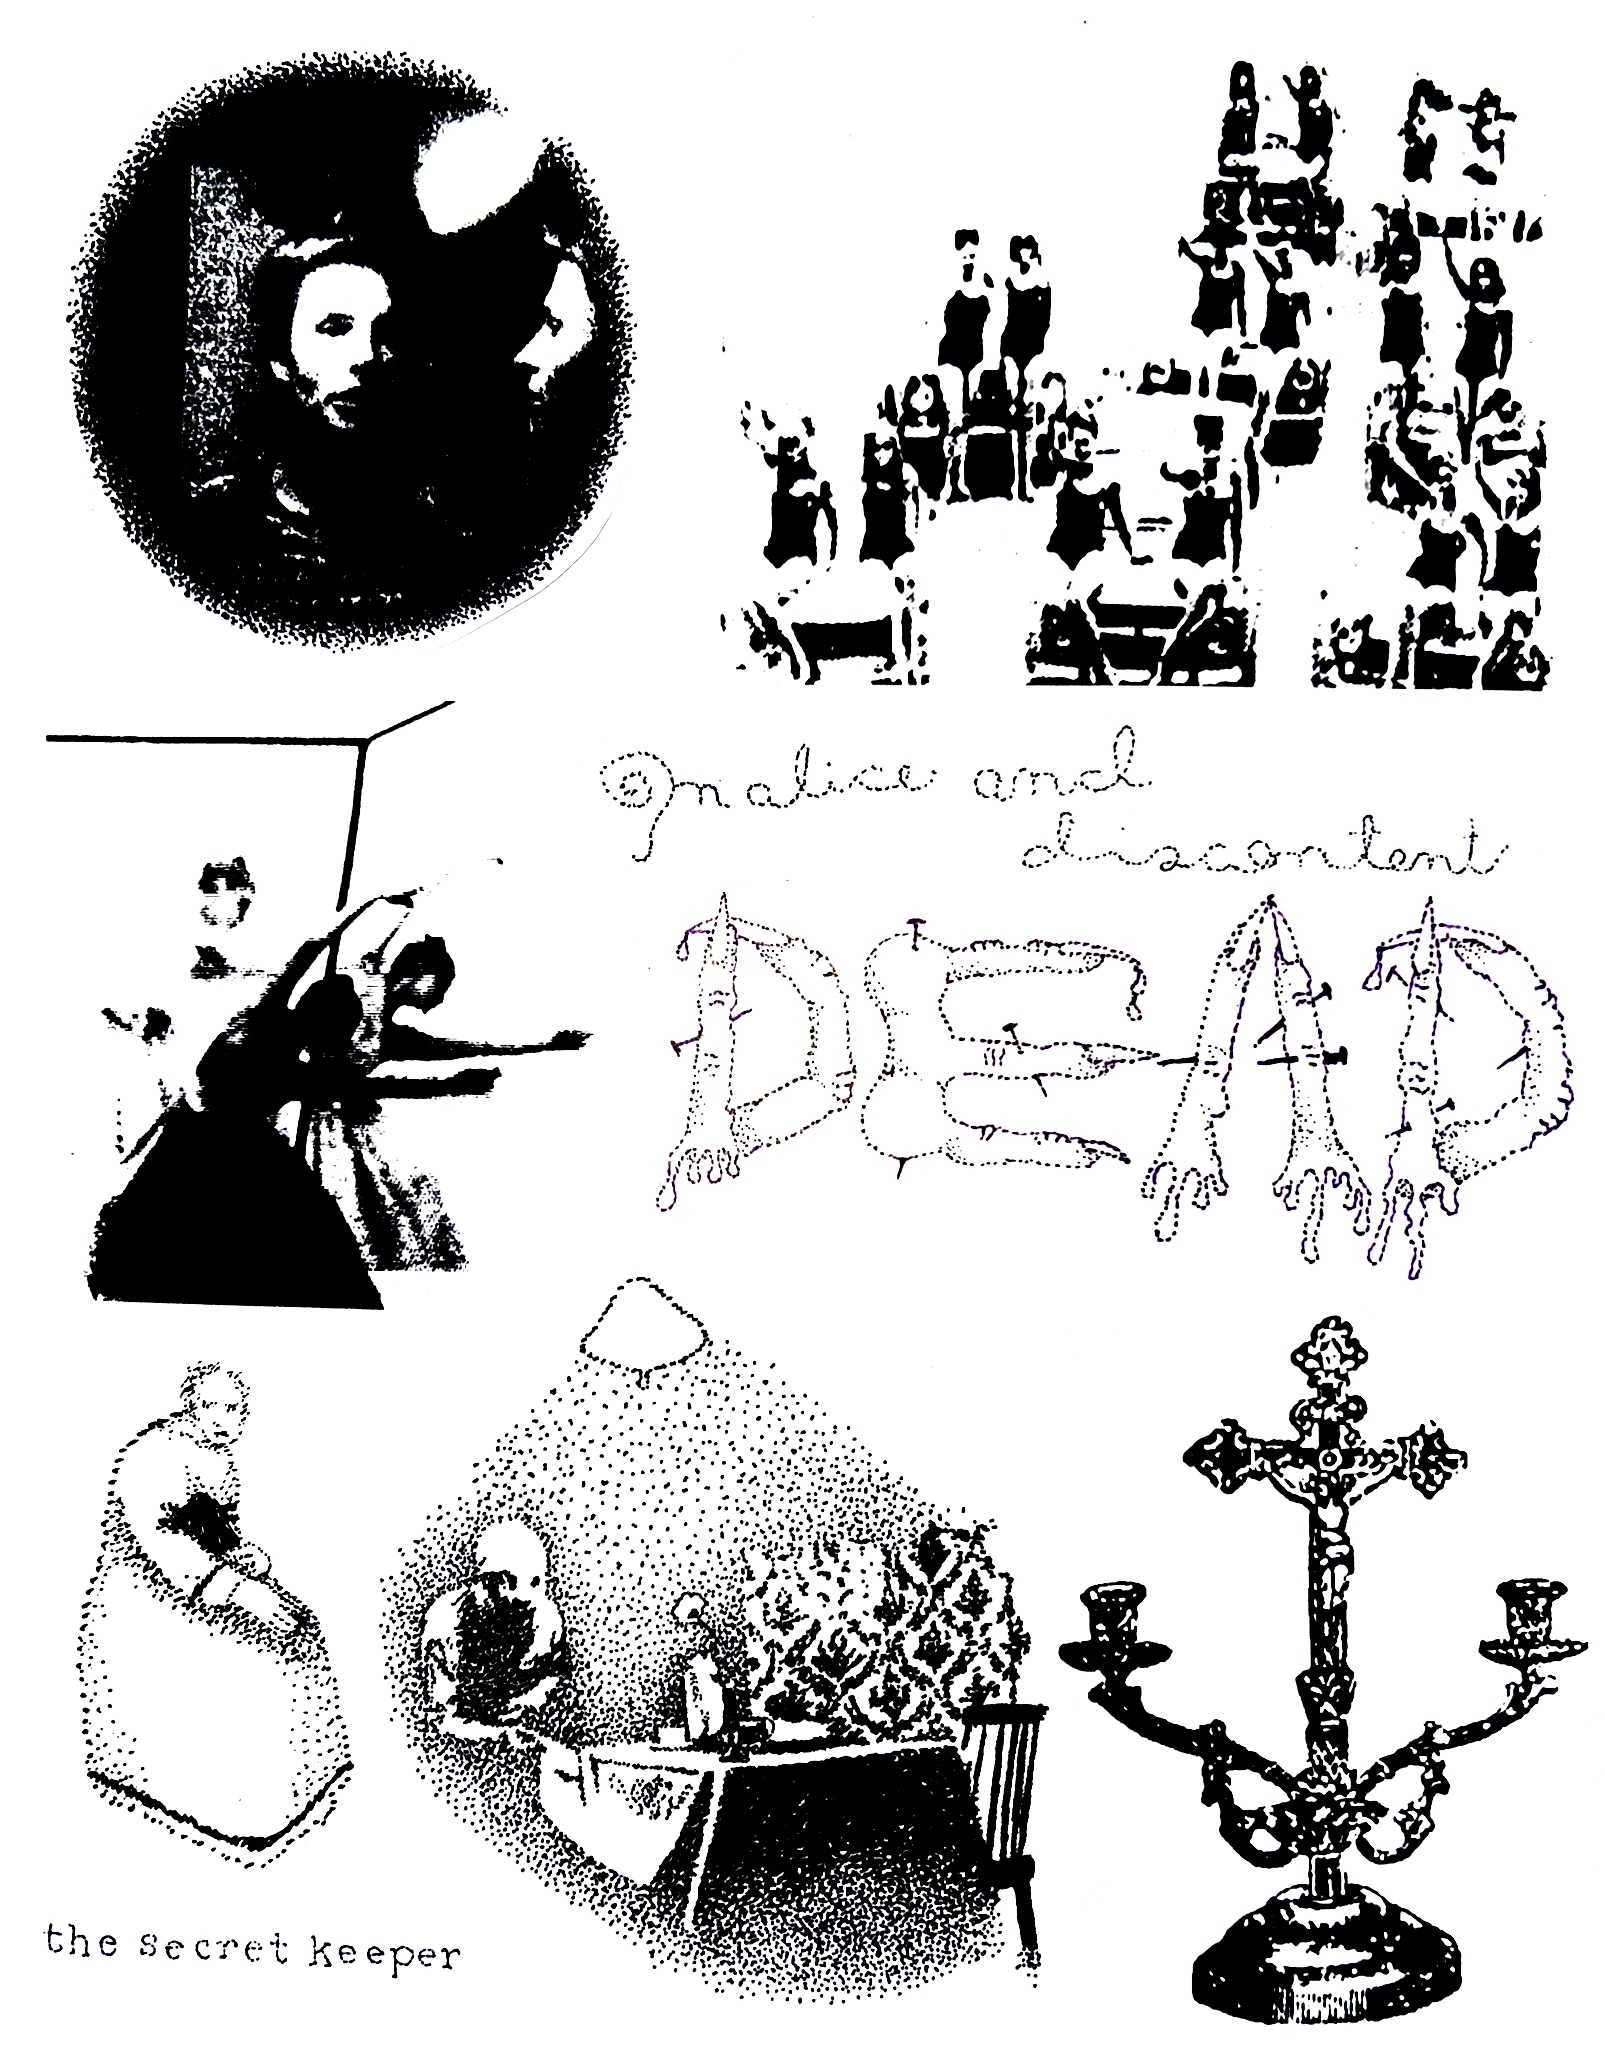 In alice and
discontent
DEAD
the secret keeper